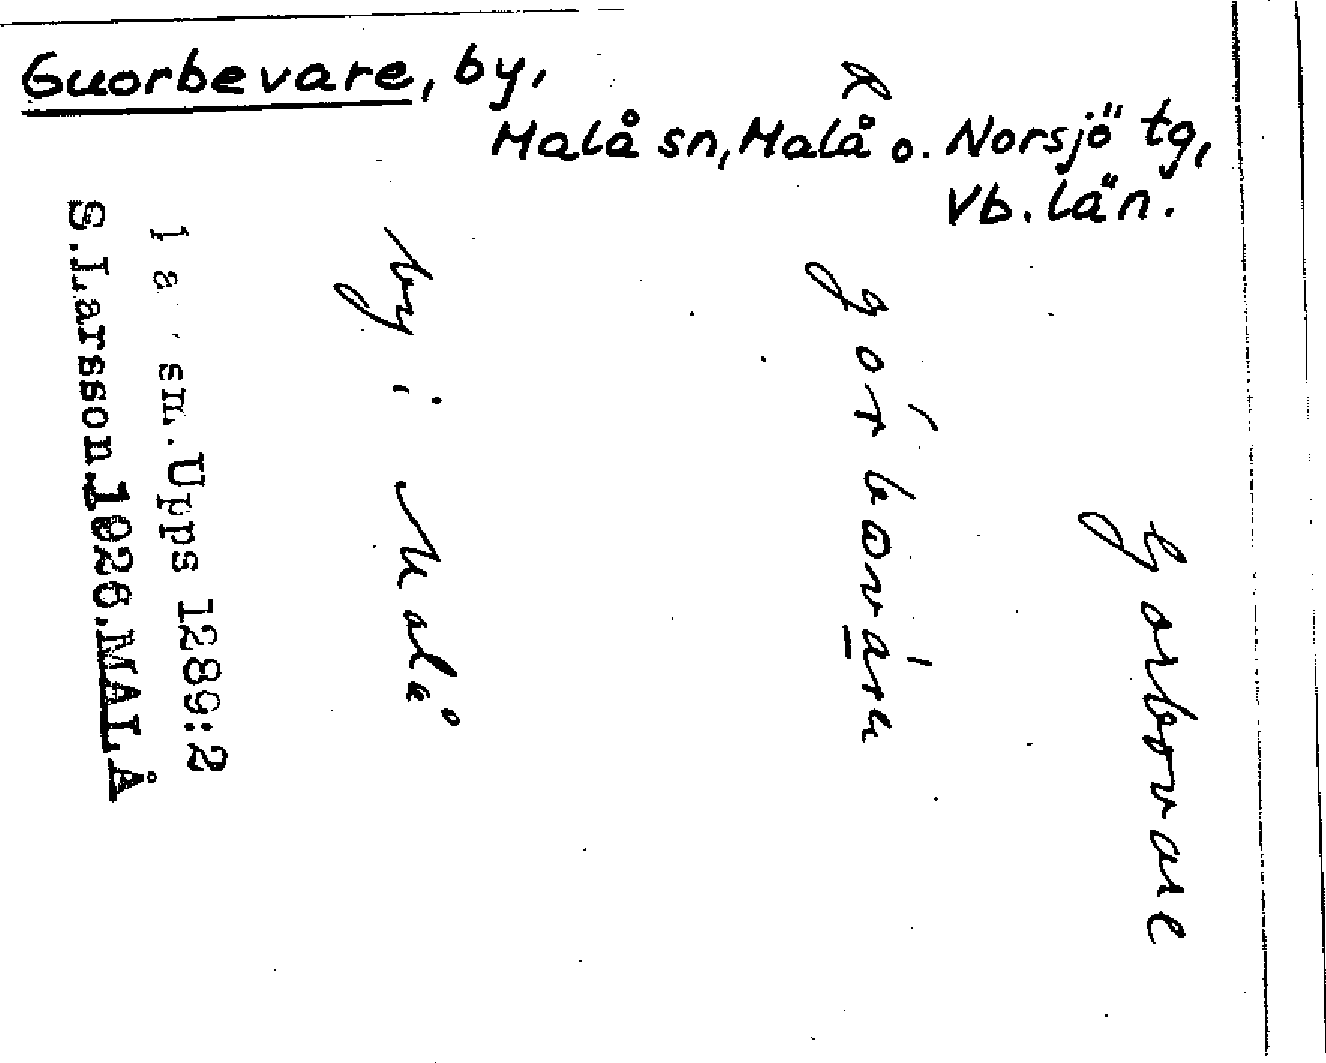 Guorbevare, by,
Malå sn, Malå o. Norsjö tg,
Vb. län.
Gorbovare
by i Malå
sm. Upps 1289:2
S.Larsson.1926.MALÅ